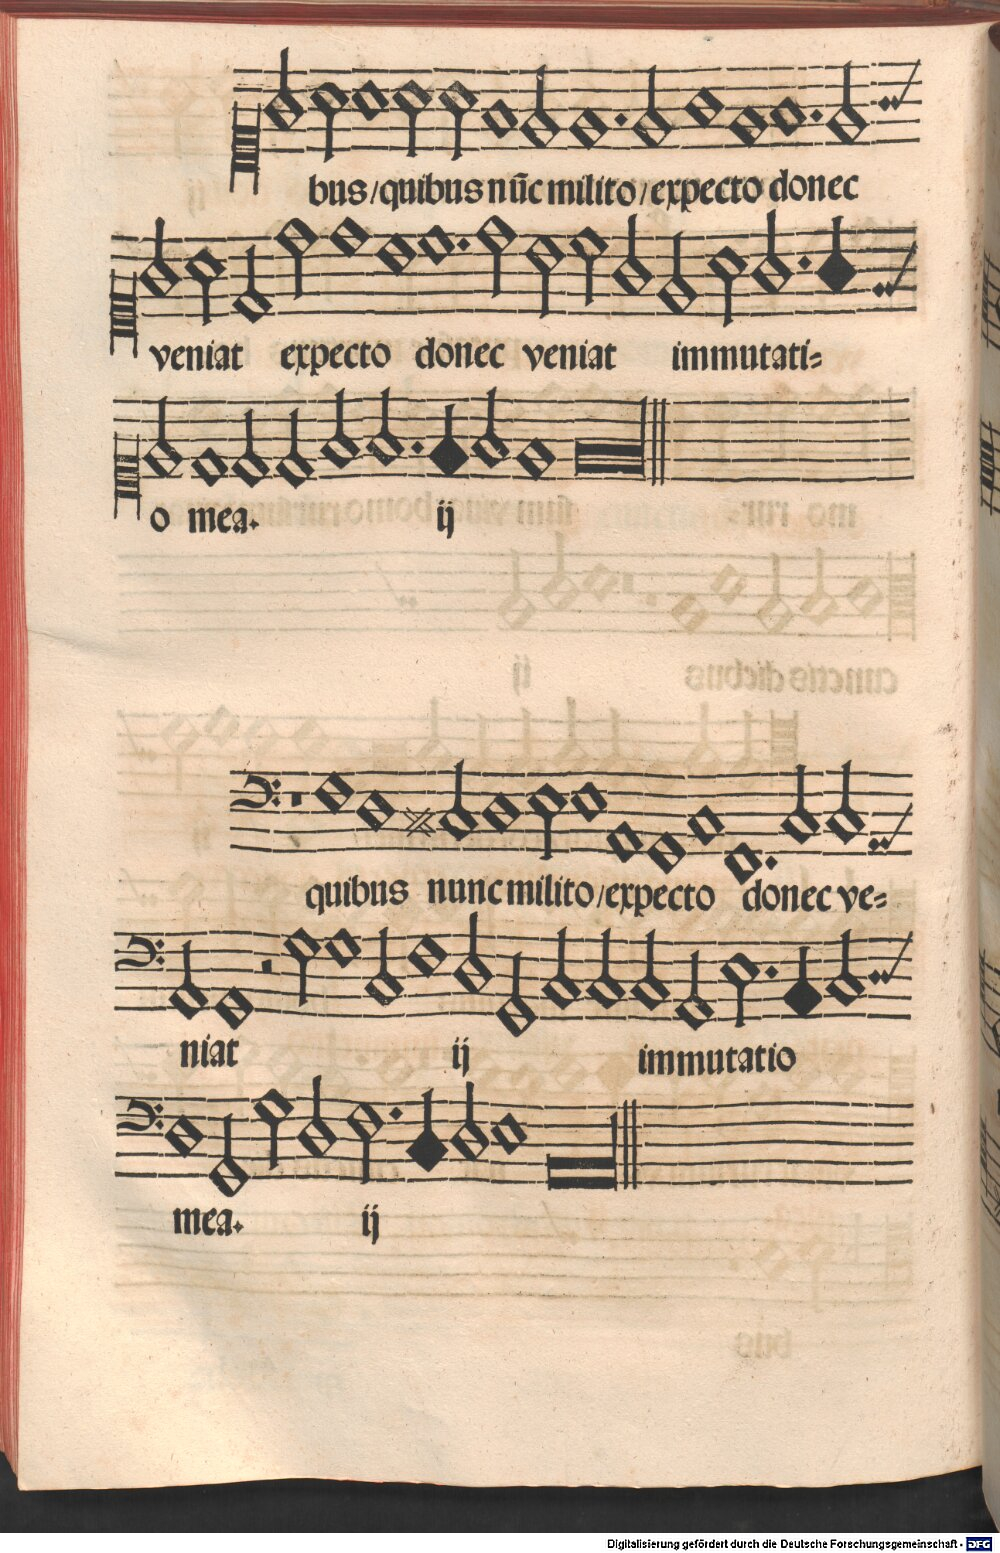 bus/quibus nūc milito/expecto donec
veniat expecto donec veniat immutati=
o mea. ij
quibus nunc milito/expecto donec ve=
niat ij immutatio
mea. ij
Digitalisierung gefördert durch die Deutsche Forschungsgemeinschaft - DFG